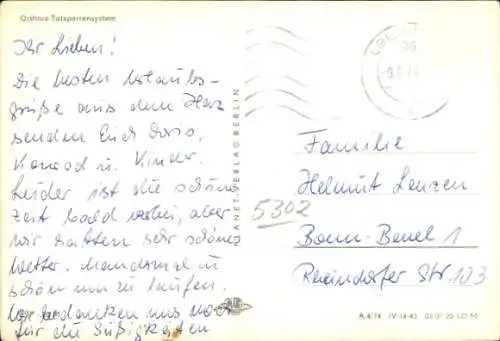 Ostharz-Talsperrensystem
Ihr Lieben!
Die besten Urlaubs-
grüße aus dem Harz
senden Euch Doris,
Konrad u. Kinder.
Leider ist die schöne
Zeit bald vorbei, aber
wir hatten sehr schönes
Wetter. Manchmal zu
schön um zu laufen.
Wir bedanken uns noch
für die Süßigkeiten
PLANET-VERLAG BERLIN
Familie
Helmut Lenzen
5302
Bonn-Beuel 1
Rheindorfer Str. 103
A 4/74 IV-14-45